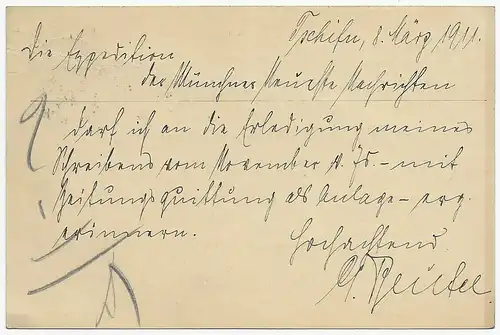 Tschifu, 8. März 1911.
Die Expedition
der Münchner Neueste Nachrichten
darf ich an die Erledigung meines
Schreibens vom November v. Js. – mit
Zeitungsquittung als Anlage – erg.
erinnern.
Hochachtend